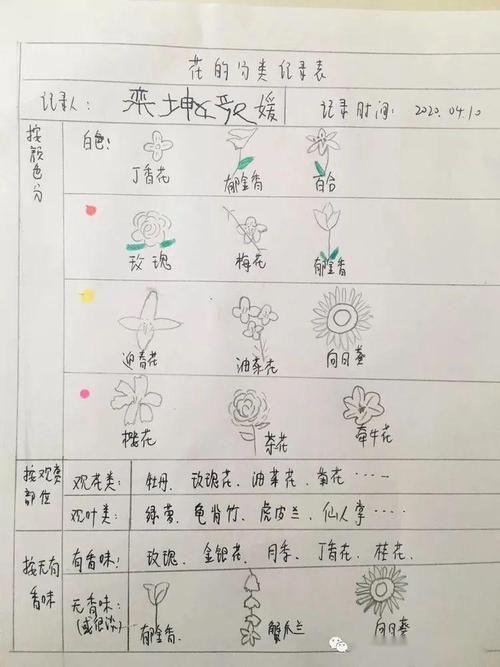 花的分类记录表
记录人： 栾坤 歌媛 记录时间：2020.04.10
按颜色分
白色： 丁香花 郁金香 百合
玫瑰 梅花 郁金香
迎春花 油菜花 向日葵
樱花 茶花 牵牛花
按观赏部位
观花类： 牡丹、玫瑰花、油菜花、菊花……
观叶类： 绿萝、龟背竹、虎皮兰、仙人掌……
按无有香味
有香味： 玫瑰、金银花、月季、丁香花、桂花、
无香味：(或很淡) 郁金香、 蟹爪兰 向日葵